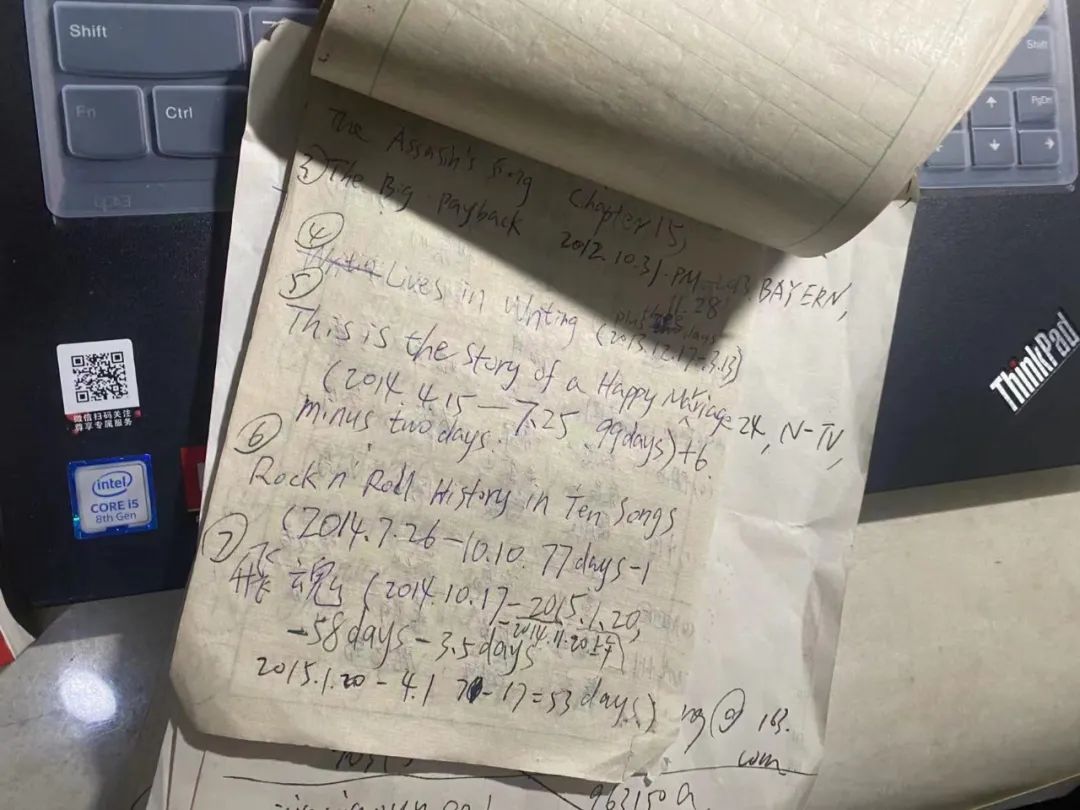 Shift
Fn
Ctrl
Shift
PgDn
ThinkPad
微信扫码关注
尊享专属服务
intel
CORE i5
8th Gen
The Assasin's Song Chapter 15,
③ The Big payback 2012.10.31.PM
BAYERN,
11.28
④
Lives in Writing (plus days
(2013.12.17-3.13)
⑤
This is the story of a Happy Marriage 24, N-TV,
(2014.4.15—7.25 99days)+6
minus two days.
⑥
Rock n' Roll History in Ten Songs
(2014.7.26-10.10. 77days-1
⑦
魂 (2014.10.17-2015.1.20,
2014.11.20
-58days-3.5days
2015.1.20-4.1 -17=53 days)
ng@163.
com
963150